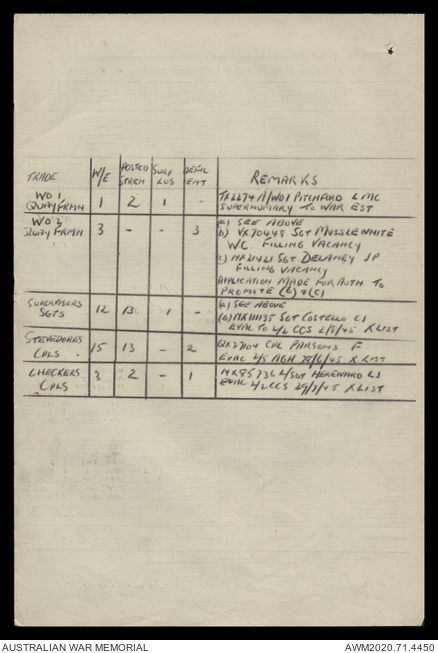 TRADE W/E POSTED STREN SURP LUS DEFIC IENT REMARKS
WO 1 QUAY FRMN 1 2 1 - TX2274 A/WO1 PITCHFORD L MC
SUPERNUMARY TO WAR EST
WO 2 QUAY FRMN 3 - - 3 (a) SEE ABOVE
b) VX70448 SGT MUSSLEWHITE
WC FILLING VACANCY
c) NX21421 SGT DELANEY JP
FILLING VACANCY
APPLICATION MADE FOR AUTH TO
PROMOTE (b) & (c)
SUPERVISORS SGTS 12 13 1 (a) SEE ABOVE
(b) NX111135 SGT COSTELLO CJ
EVAC TO 2/2 CCS 2/8/45 X LIST
STEVEDORES CPLS . 15 13 - 2 QX27104 CPL PARSONS F
EVAC 2/5 AGH /6/45 X LIST
CHECKERS CPLS 3 2 - 1 NX85736 L/SGT HEREWARD LJ
EVAC 2/2 CCS 29/7/45 X LIST
AUSTRALIAN WAR MEMORIAL AWM2020.71.4450